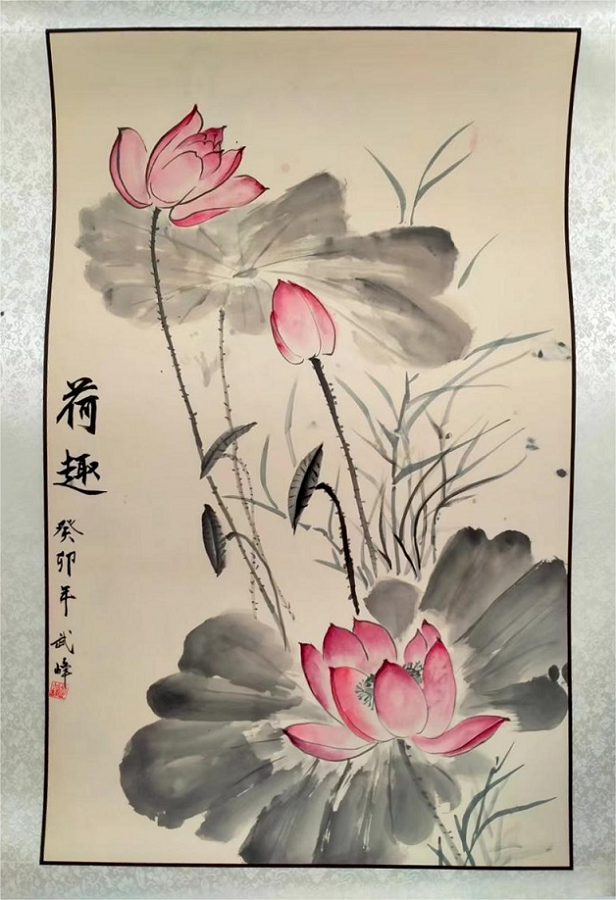 荷趣
癸卯年 武峰